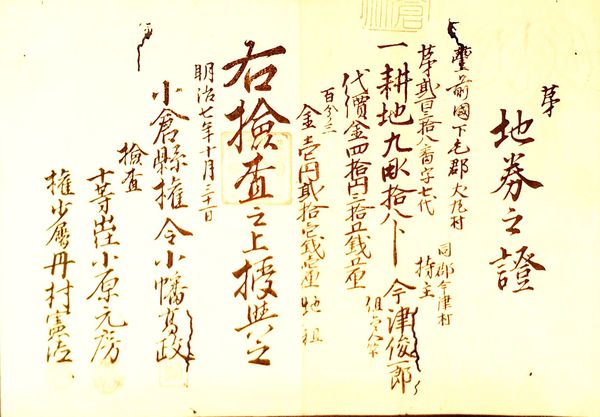 地券之證
第
豊前國下毛郡犬丸村
第貳百三拾八番字七代
一耕地九畝拾八卜
同郡今津村
持主
今津俊一郎
代價金四拾円三拾五銭五厘
百分三
金壱円貳拾壱銭壱厘 地租
右撿査之上授與之
明治七年十月三十一日
小倉縣權令小幡高政
撿査
十等出仕小原元房
權少属丹村憲治